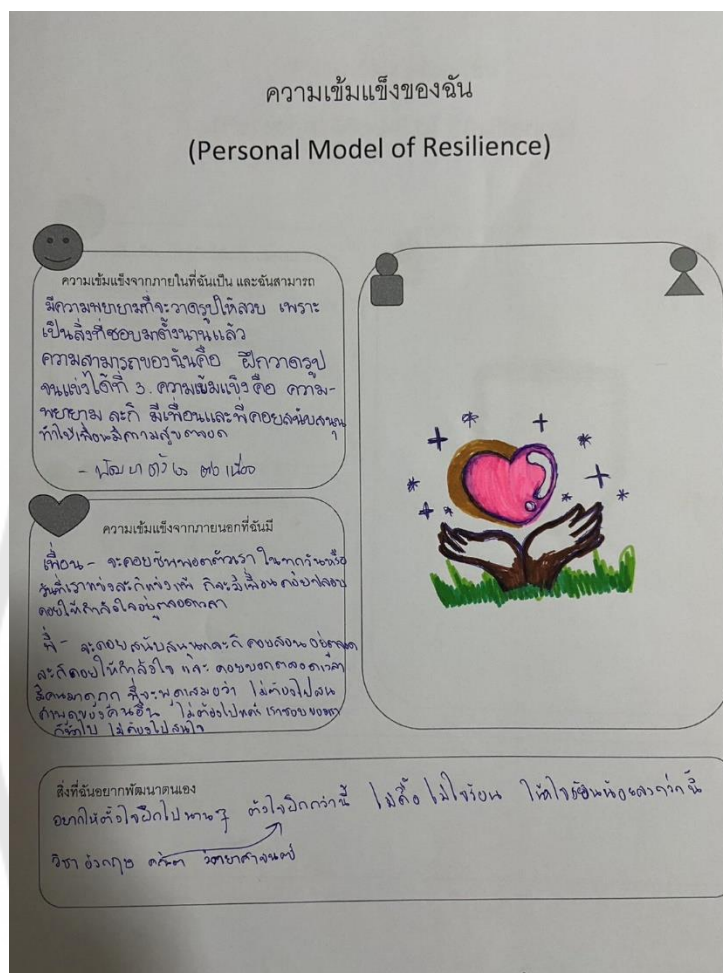 ความเข้มแข็งของฉัน
(Personal Model of Resilience)
ความเข้มแข็งจากภายในที่ฉันเป็น และฉันสามารถ
มีความพยายามที่จะวาดรูปให้สวย เพราะ
เป็นสิ่งที่ชอบมาตั้งนานแล้ว
ความสามารถของฉันคือ ฝึกวาดรูป
จนแข่งได้ที่ 3. ความเข้มแข็งคือ ความ-
พยายาม ละก็ มีเพื่อนและพี่คอยสนับสนุน
ทำให้เพื่อนมีความสุขตลอด
- พัฒนาตัวเอง
ความเข้มแข็งจากภายนอกที่ฉันมี
เพื่อน - จะคอยซัพพอตตัวเรา ในทุกวันหรือ
วันที่เราแข่งละก็แข่งแพ้ ก็จะมีเพื่อนคอยปลอบ
คอยให้กำลังใจอยู่ตลอดเวลา
พี่ - จะคอยสนับสนุนและก็ คอยสอนอยู่ตลอด
ละก็คอยให้กำลังใจ และ คอยบอกตลอดเวลา
มีคนมาดูถูก พี่จะพูดเสมอว่า ไม่ต้องไปสน
คำพูดของคนอื่น ไม่ต้องไปแคร์ เราชอบของเรา
ก็ทำไป ไม่ต้องไปสนใจ
สิ่งที่ฉันอยากพัฒนาตนเอง
อยากให้ตั้งใจฝึกไปนานๆ ตั้งใจฝึกกว่านี้ ไม่ดื้อ ไม่ใจร้อน ให้ใจร้อนน้อยลงกว่านี้
วิชา อังกฤษ คณิต วิทยาศาสตร์